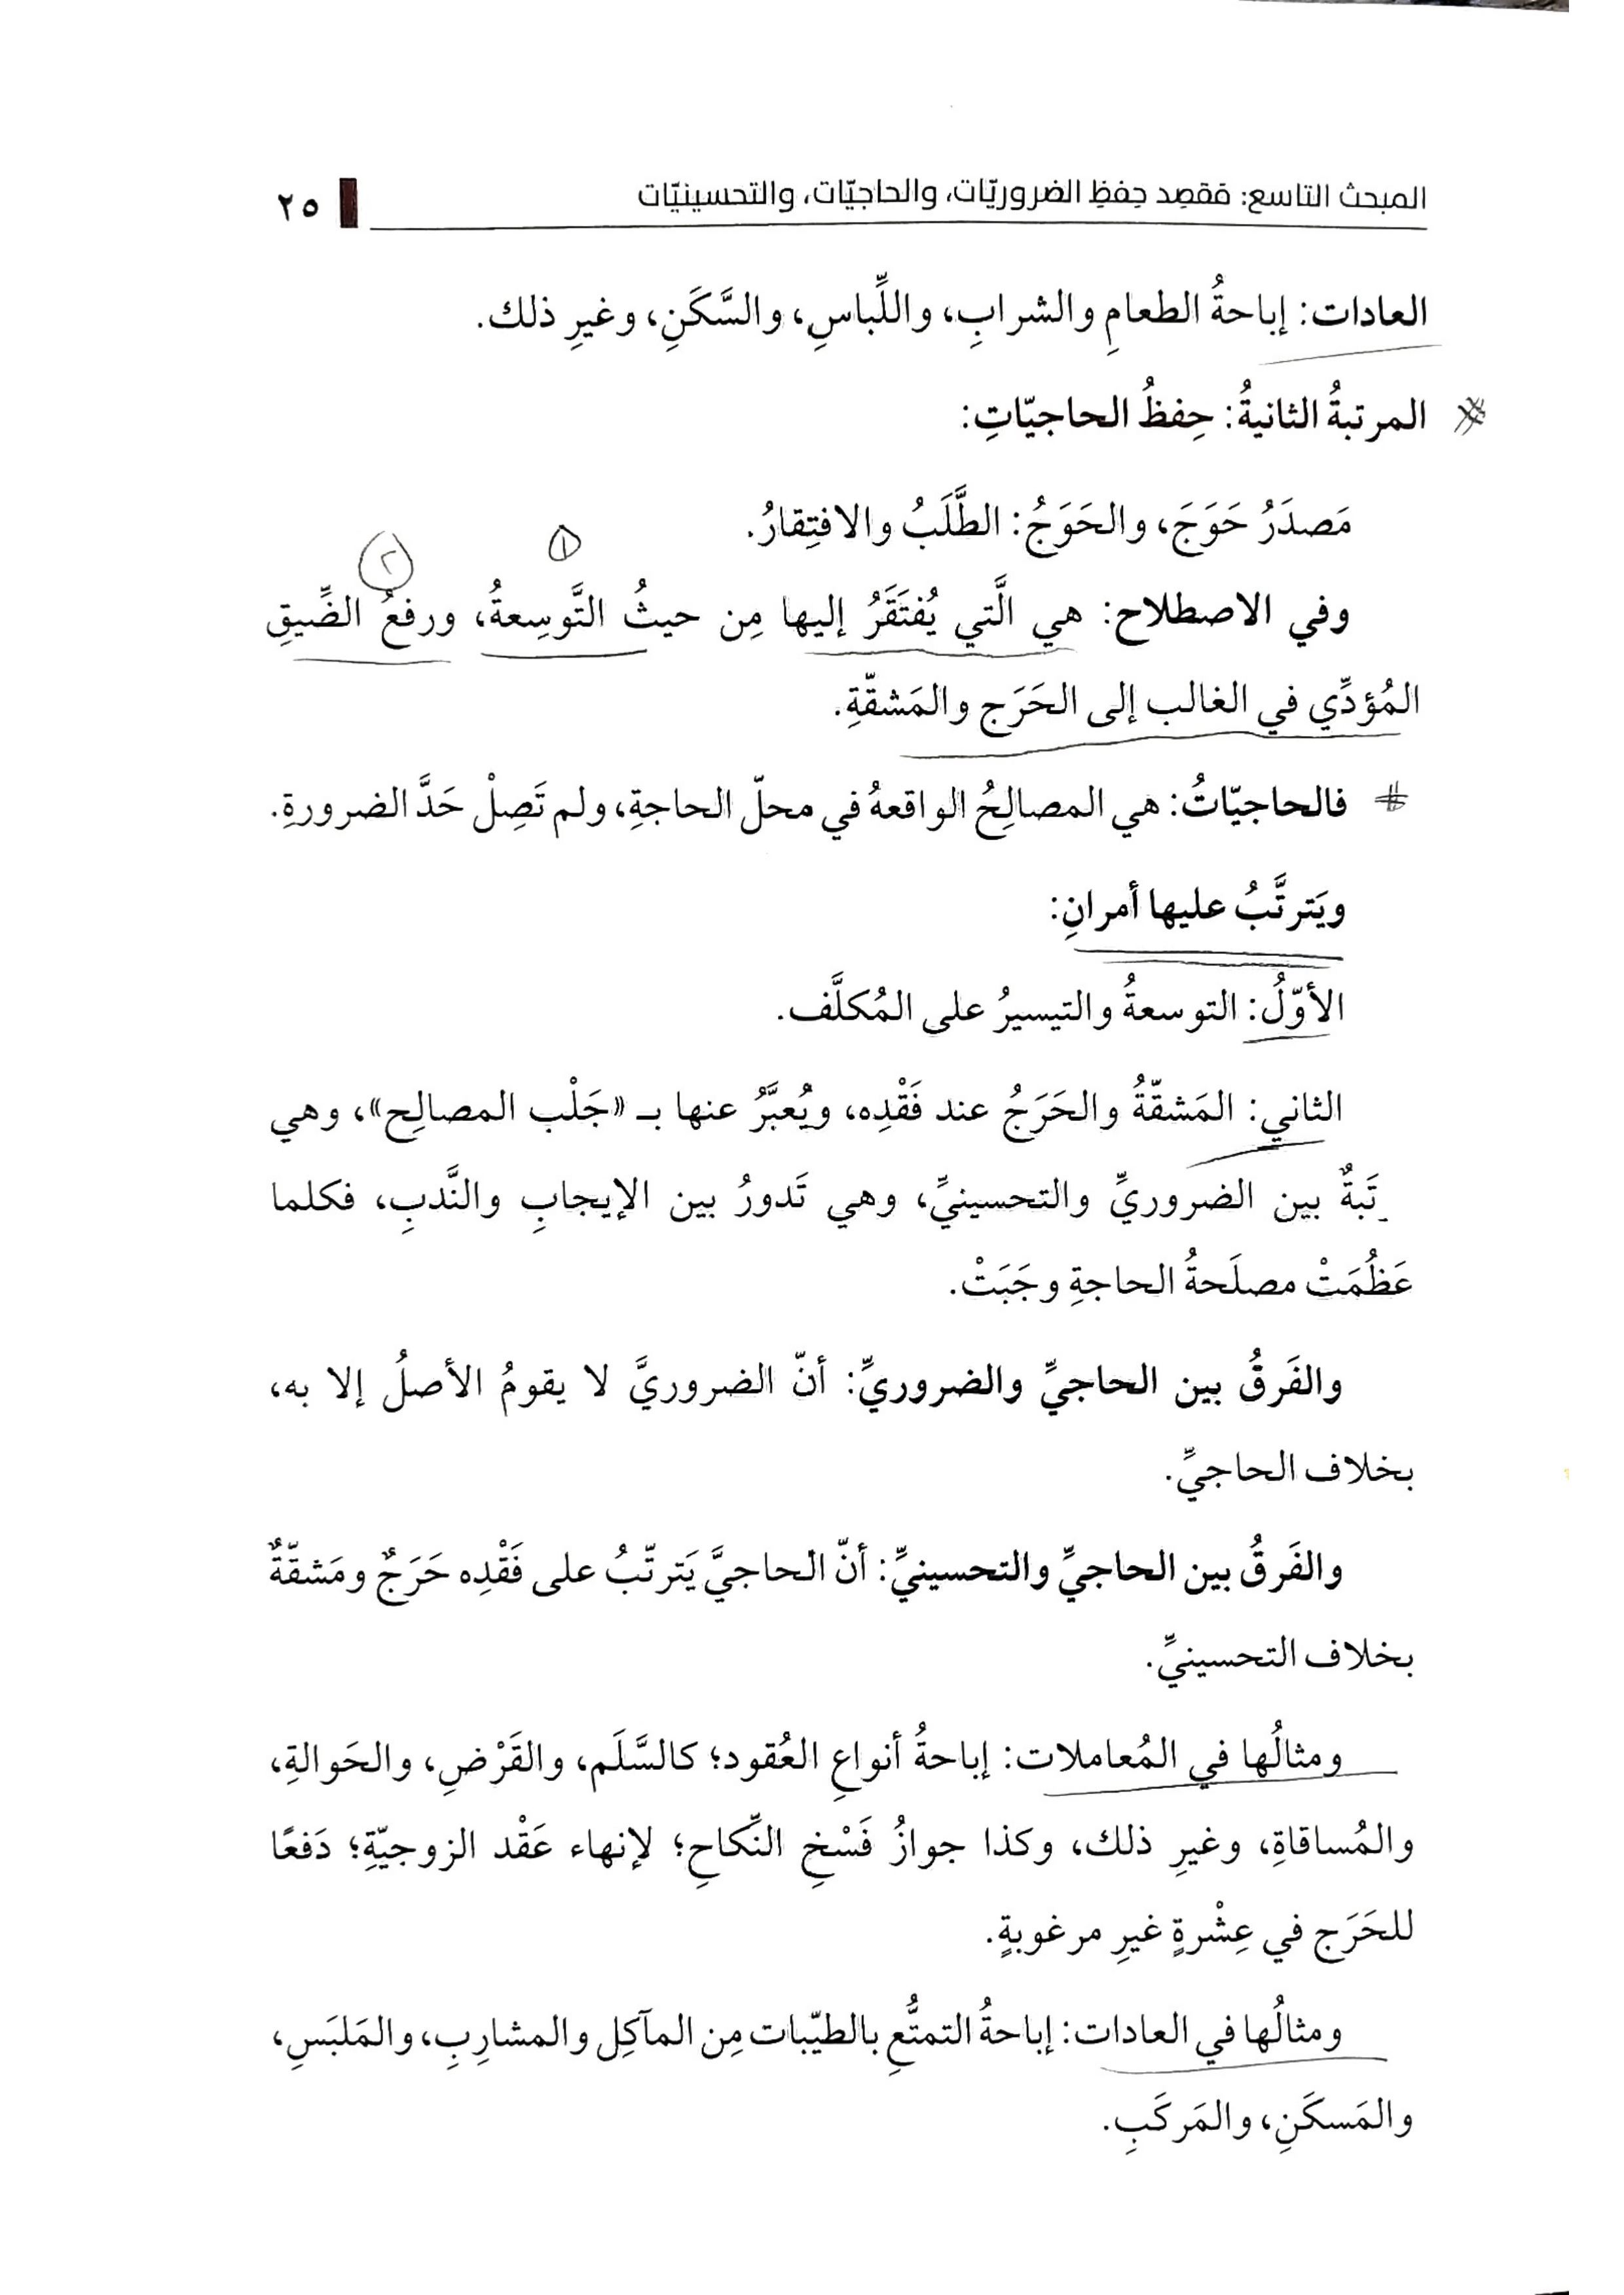 المبحث التاسع: مَقصِد حِفظِ الضروريّات، والحاجيّات، والتحسينيّات
٢٥
العادات: إباحةُ الطعامِ والشرابِ، واللِّباسِ، والسَّكَنِ، وغيرِ ذلك.
المرتبةُ الثانيةُ: حِفظُ الحاجيّاتِ:
مَصدَرُ حَوَجَ، والحَوَجُ: الطَّلَبُ والافتِقارُ.
١
٢
وفي الاصطلاح: هي الَّتي يُفتَقَرُ إليها مِن حيثُ التَّوسِعةُ، ورفعُ الضِّيقِ
المُؤدِّي في الغالب إلى الحَرَج والمَشقّةِ.
فالحاجيّاتُ: هي المصالِحُ الواقعهُ في محلّ الحاجةِ، ولم تَصِلْ حَدَّ الضرورةِ.
ويَترتَّبُ عليها أمرانِ:
الأوّلُ: التوسعةُ والتيسيرُ على المُكلَّف.
الثاني: المَشقّةُ والحَرَجُ عند فَقْدِه، ويُعبَّرُ عنها بـ «جَلْب المصالِح»، وهي
تَبةٌ بين الضروريِّ والتحسينيِّ، وهي تَدورُ بين الإيجابِ والنَّدبِ، فكلما
عَظُمَتْ مصلَحةُ الحاجةِ وجَبَتْ.
والفَرقُ بين الحاجيِّ والضروريِّ: أنّ الضروريَّ لا يقومُ الأصلُ إلا به،
بخلاف الحاجيِّ.
والفَرقُ بين الحاجيِّ والتحسينيِّ: أنّ الحاجيَّ يَترتّبُ على فَقْدِه حَرَجٌ ومَشقّةٌ
بخلاف التحسينيِّ.
ومثالُها في المُعاملات: إباحةُ أنواعِ العُقود؛ كالسَّلَم، والقَرْضِ، والحَوالةِ،
والمُساقاةِ، وغيرِ ذلك، وكذا جوازُ فَسْخِ النِّكاحِ؛ لإنهاء عَقْد الزوجيّةِ؛ دَفعًا
للحَرَج في عِشْرةٍ غيرِ مرغوبةٍ.
ومثالُها في العادات: إباحةُ التمتُّعِ بالطيّبات مِن المآكِل والمشارِبِ، والمَلبَسِ،
والمَسكَنِ، والمَركَبِ.